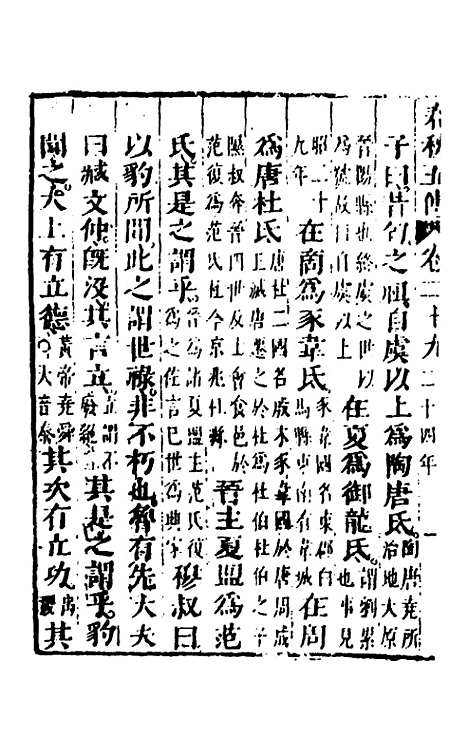 春秋五傳 卷二十九 二十四年 一
子曰昔匄之祖自虞以上爲陶唐氏陶唐堯所治地大原
晉陽縣也終虞之世以爲號故曰自虞以上在夏爲御龍氏謂劉累也事見
昭二十九年在商爲豕韋氏豕韋國名東郡白馬縣東南有韋城在周
爲唐杜氏唐杜二國名殷末豕韋國於唐周成王滅唐遷之於杜爲杜伯杜伯之子
隰叔奔晉四世及士會食邑於范復爲范氏杜今京兆杜縣晉主夏盟爲范
氏其是之謂乎晉爲諸夏盟主范氏復爲之佐言己世爲興家穆叔曰
以豹所聞此之謂世祿非不朽也魯有先大夫
曰臧文仲旣沒其言立立謂不廢絕其是之謂乎豹
聞之大上有立德黃帝堯舜○大音泰其次有立功禹稷其